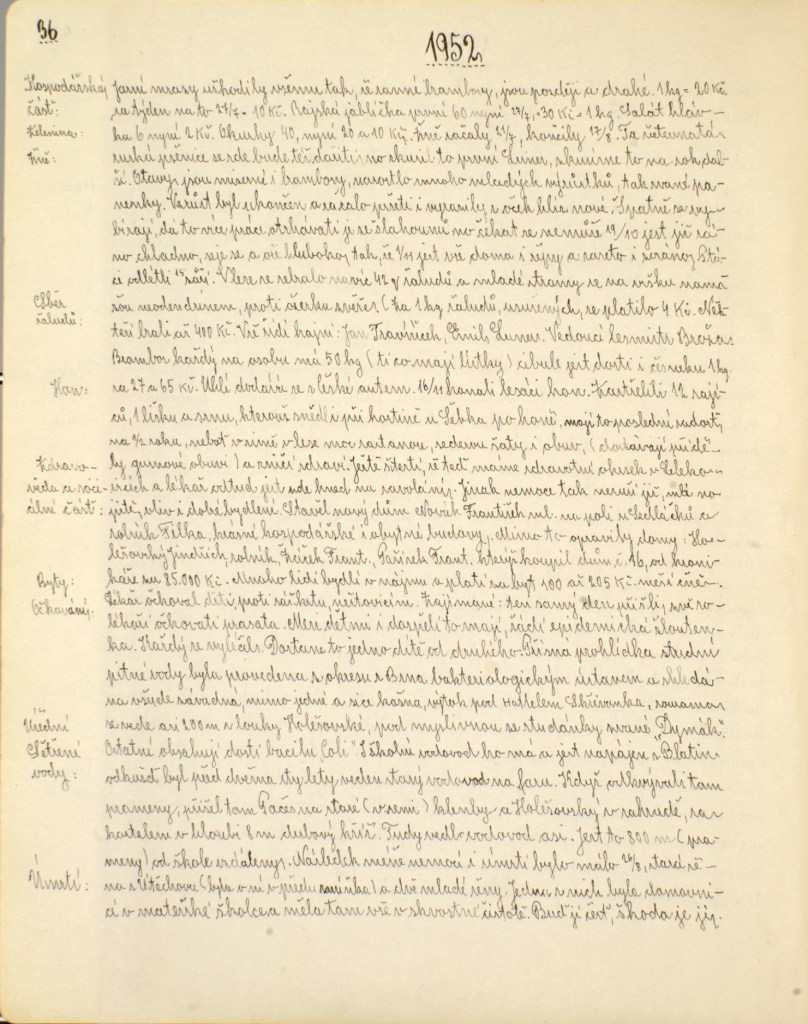 36
1952
Hospodářská Jarní mrazy uškodily všemu tak, že ranné brambory, jsou později a drahé. 1 kg = 20 Kč.
část: za týden na to 24/7 - 10 Kč. Rajská jablíčka první 60 nyní 30 Kč = 1 kg. Salát hláv-
Zelenina: ku 6 nyní 2 Kč. Okurky 40, nyní 20 a 10 Kčs. Žně začaly 21/7, končily 17/8. Ta větevnatá
Žně: ruská pšenice se zde bude též dařiti, no zkusil to první Zuner, zkusíme to na rok dal-
ší. Otavy, jsou mizerné i brambory, narostlo mnoho mladých výrůstků, tak zvané pa-
nenky. Vzrůst byl ukončen a začalo pršeti i vyrazily z oček klíz nové. Špatně se vy-
bírají, dá to více práce otrhávati je se šlahounů no čekat se nemůže 12/10 jest již rá-
no chladno, seje se a oře hluboko, tak, že 1/11 jest vše doma i řepy a zaseto i zoráno. Ptá-
ci odlétli 15 září. V lese se sebralo navíc 42 q žaludů a mladé stromy se na vršku namá-
Sběr žaludů: čou neodendrinem, proti ožerku zvěře. (Za 1 kg žaludů, usušených, se platilo 4 Kč. Něk-
teří brali až 400 Kč. Vše řídí hajní: Jan Travníček, Emil, Zuner. Vedoucí lesmistr Brože.
Brambor každý na osobu má 50 kg (ti co mají lístky) cibule jest dosti i česneku 1 kg.
Hon: za 27 a 65 Kč. Uhlí dodává se z České autem. 16/11 konali lesáci hon. Zastřelili 12 zají-
ců, 1 lišku a srnu, kterouž snědli při hostině u Sebka po honě, mají to poslední radost,
na 1/2 roku, neboť v zimě v lese moc zastanou, sederou šaty i obuv, (dostávají příděl-
Zdravo- ly gumové obuvi) a zničí zdraví. Ještě štěstí, že teď máme zdravotní okrsek u
věda a soci- a lékař odtud jest zde hned na zavolání. Jinak nemoce tak neruší již, má na
ální část: jídlo, oděv i dobré bydlení. Stavěl nový dům Novák František ml. na poli u Sedláčků a
rolník Filka, krásné hospodářské i obytné budovy. Mimo to opravily domy: Ho-
lešovský Jindřich, rolník, Žáček Frant., Pařízek Frant. kterýž koupil dům č. 16, od kroni-
Byty: káře za 85.000 Kč. Mnoho lidí bydlí v nájmu a platí za byt 100 až 205 Kč. mesí čně.
Očkování: Lékař očkoval děti proti záškrtu, neštovicím. Zajímavé: ten samý den přišli, zvěro-
lékaři očkovati prasata. Mezi dětmi i dospělí to mají, řádí epidemická žlouten-
ka. Každý se vyléčil. Dostane to jedno dítě od druhého. Přísná prohlídka studní
pitné vody byla provedena z okresu z Brna bakteriologickým ústavem a shledá-
na všude závadná, mimo jedné a sice kašna, výtok pod kostelem Skřivanka, rourama
Úřední se vede asi 200 m z louky Holešovské, pod myslivnou se studánky zvané „Dymák“.
šetření Ostatní obsahují dosti bacilu „Coli“. I školní vodovod ho má a jest napájen z Blatin
vody: odkudž byl před dvema sty lety veden starý vodovod na faru. Když odkrývali tam
prameny, přišel tam Pačes na staré (v zemi) klenby a Holešovský v zahradě, za
kostelem v hloubi 8 m dubový kříž. Tudy vedl vodovod asi. Jest to 800 m (pra-
meny) od škole vzdáleny. Následek méně nemocí i úmrtí bylo málo 24/8, stará že-
Úmrtí: na z Útěchova (byla o ní v předu zmínka) a dvě mladé ženy. Jedna z nich byla domovni-
cí v mateřské školce a měla tam vše v skvostné čistotě. Buď jí čest, škoda je jí.